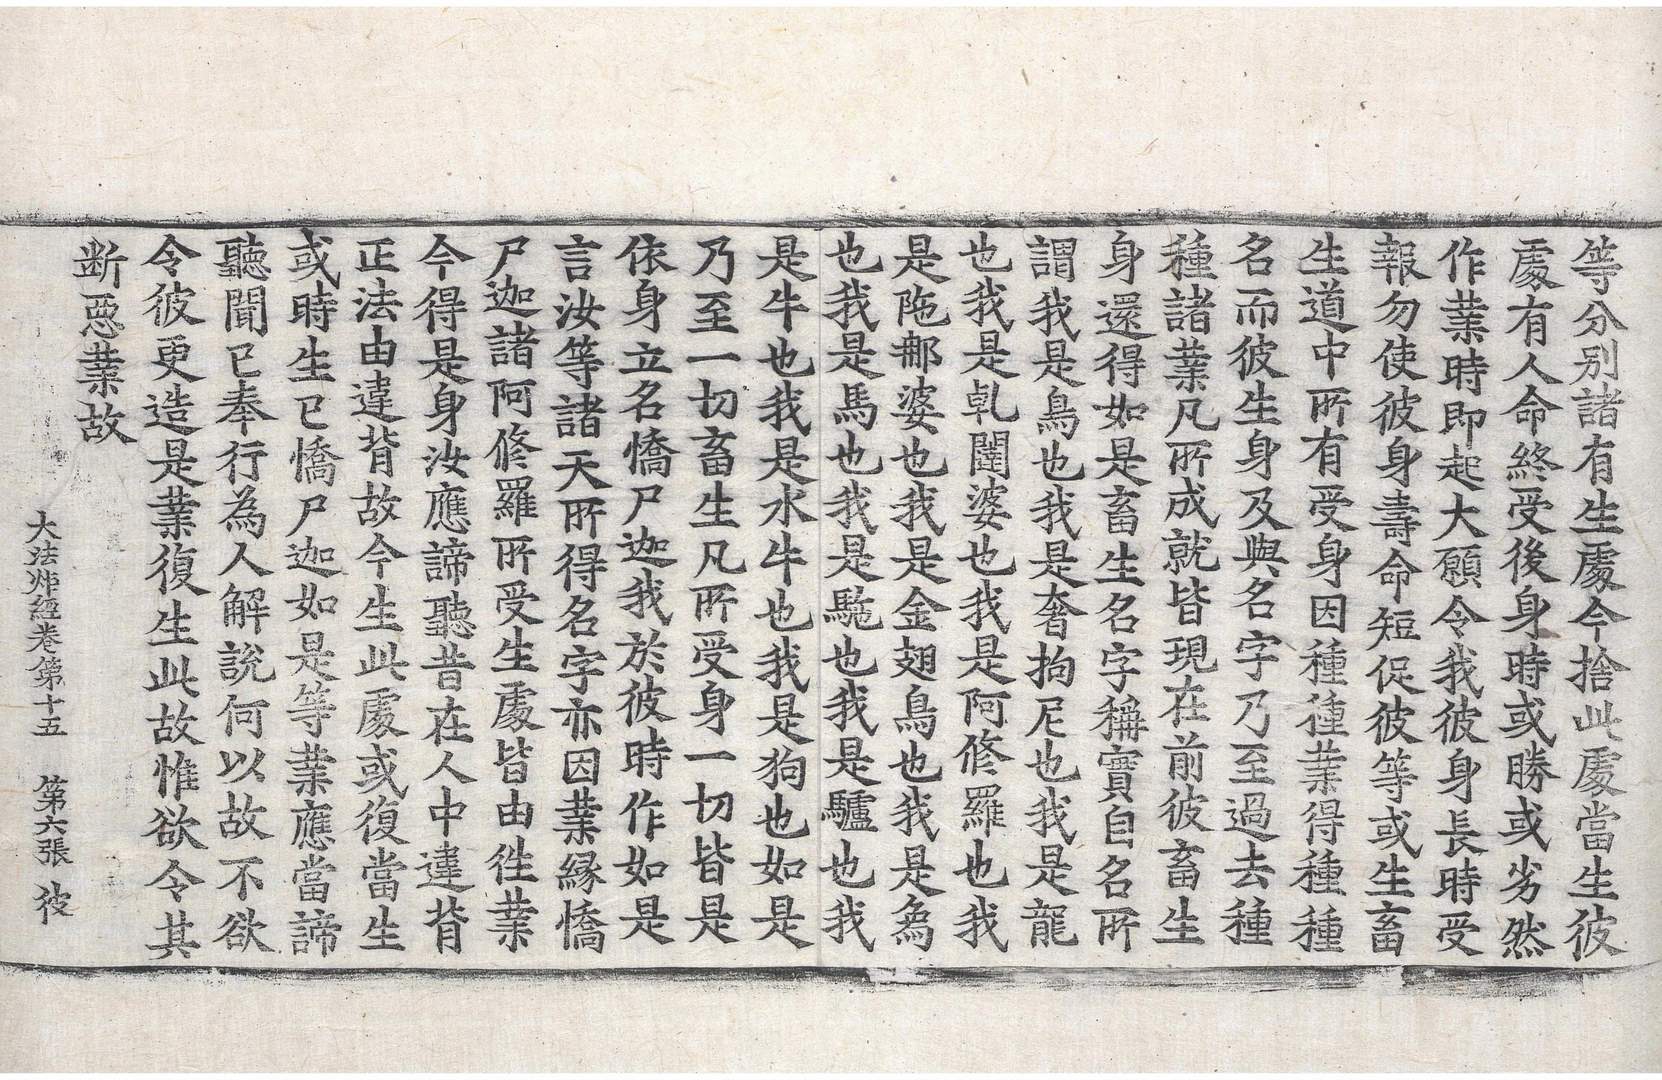 等分別諸有生處今捨此處當生彼
處有人命終受後身時或勝或劣然
作業時即起大願令我彼身長時受
報勿使彼身壽命短促彼等或生畜
生道中所有受身因種種業得種種
名而彼生身及與名字乃至過去種
種諸業凡所成就皆現在前彼畜生
身還得如是畜生名字稱實自名所
謂我是鳥也我是奢拘尼也我是龍
也我是乹闥婆也我是阿修羅也我
是陁郍婆也我是金翅鳥也我是為
也我是馬也我是駞也我是驢也我
是牛也我是水牛也我是狗也如是
乃至一切畜生凡所受身一切皆是
依身立名憍尸迦我於彼時作如是
言汝等諸天所得名字亦因業緣憍
尸迦諸阿修羅所受生處皆由徃業
今得是身汝應諦聽昔在人中違背
正法由違背故今生此處或復當生
或時生已憍尸迦如是等業應當諦
聽聞已奉行為人解說何以故不欲
令彼更造是業復生此故惟欲令其
断惡業故
大法炬經卷第十五　第六張　彼